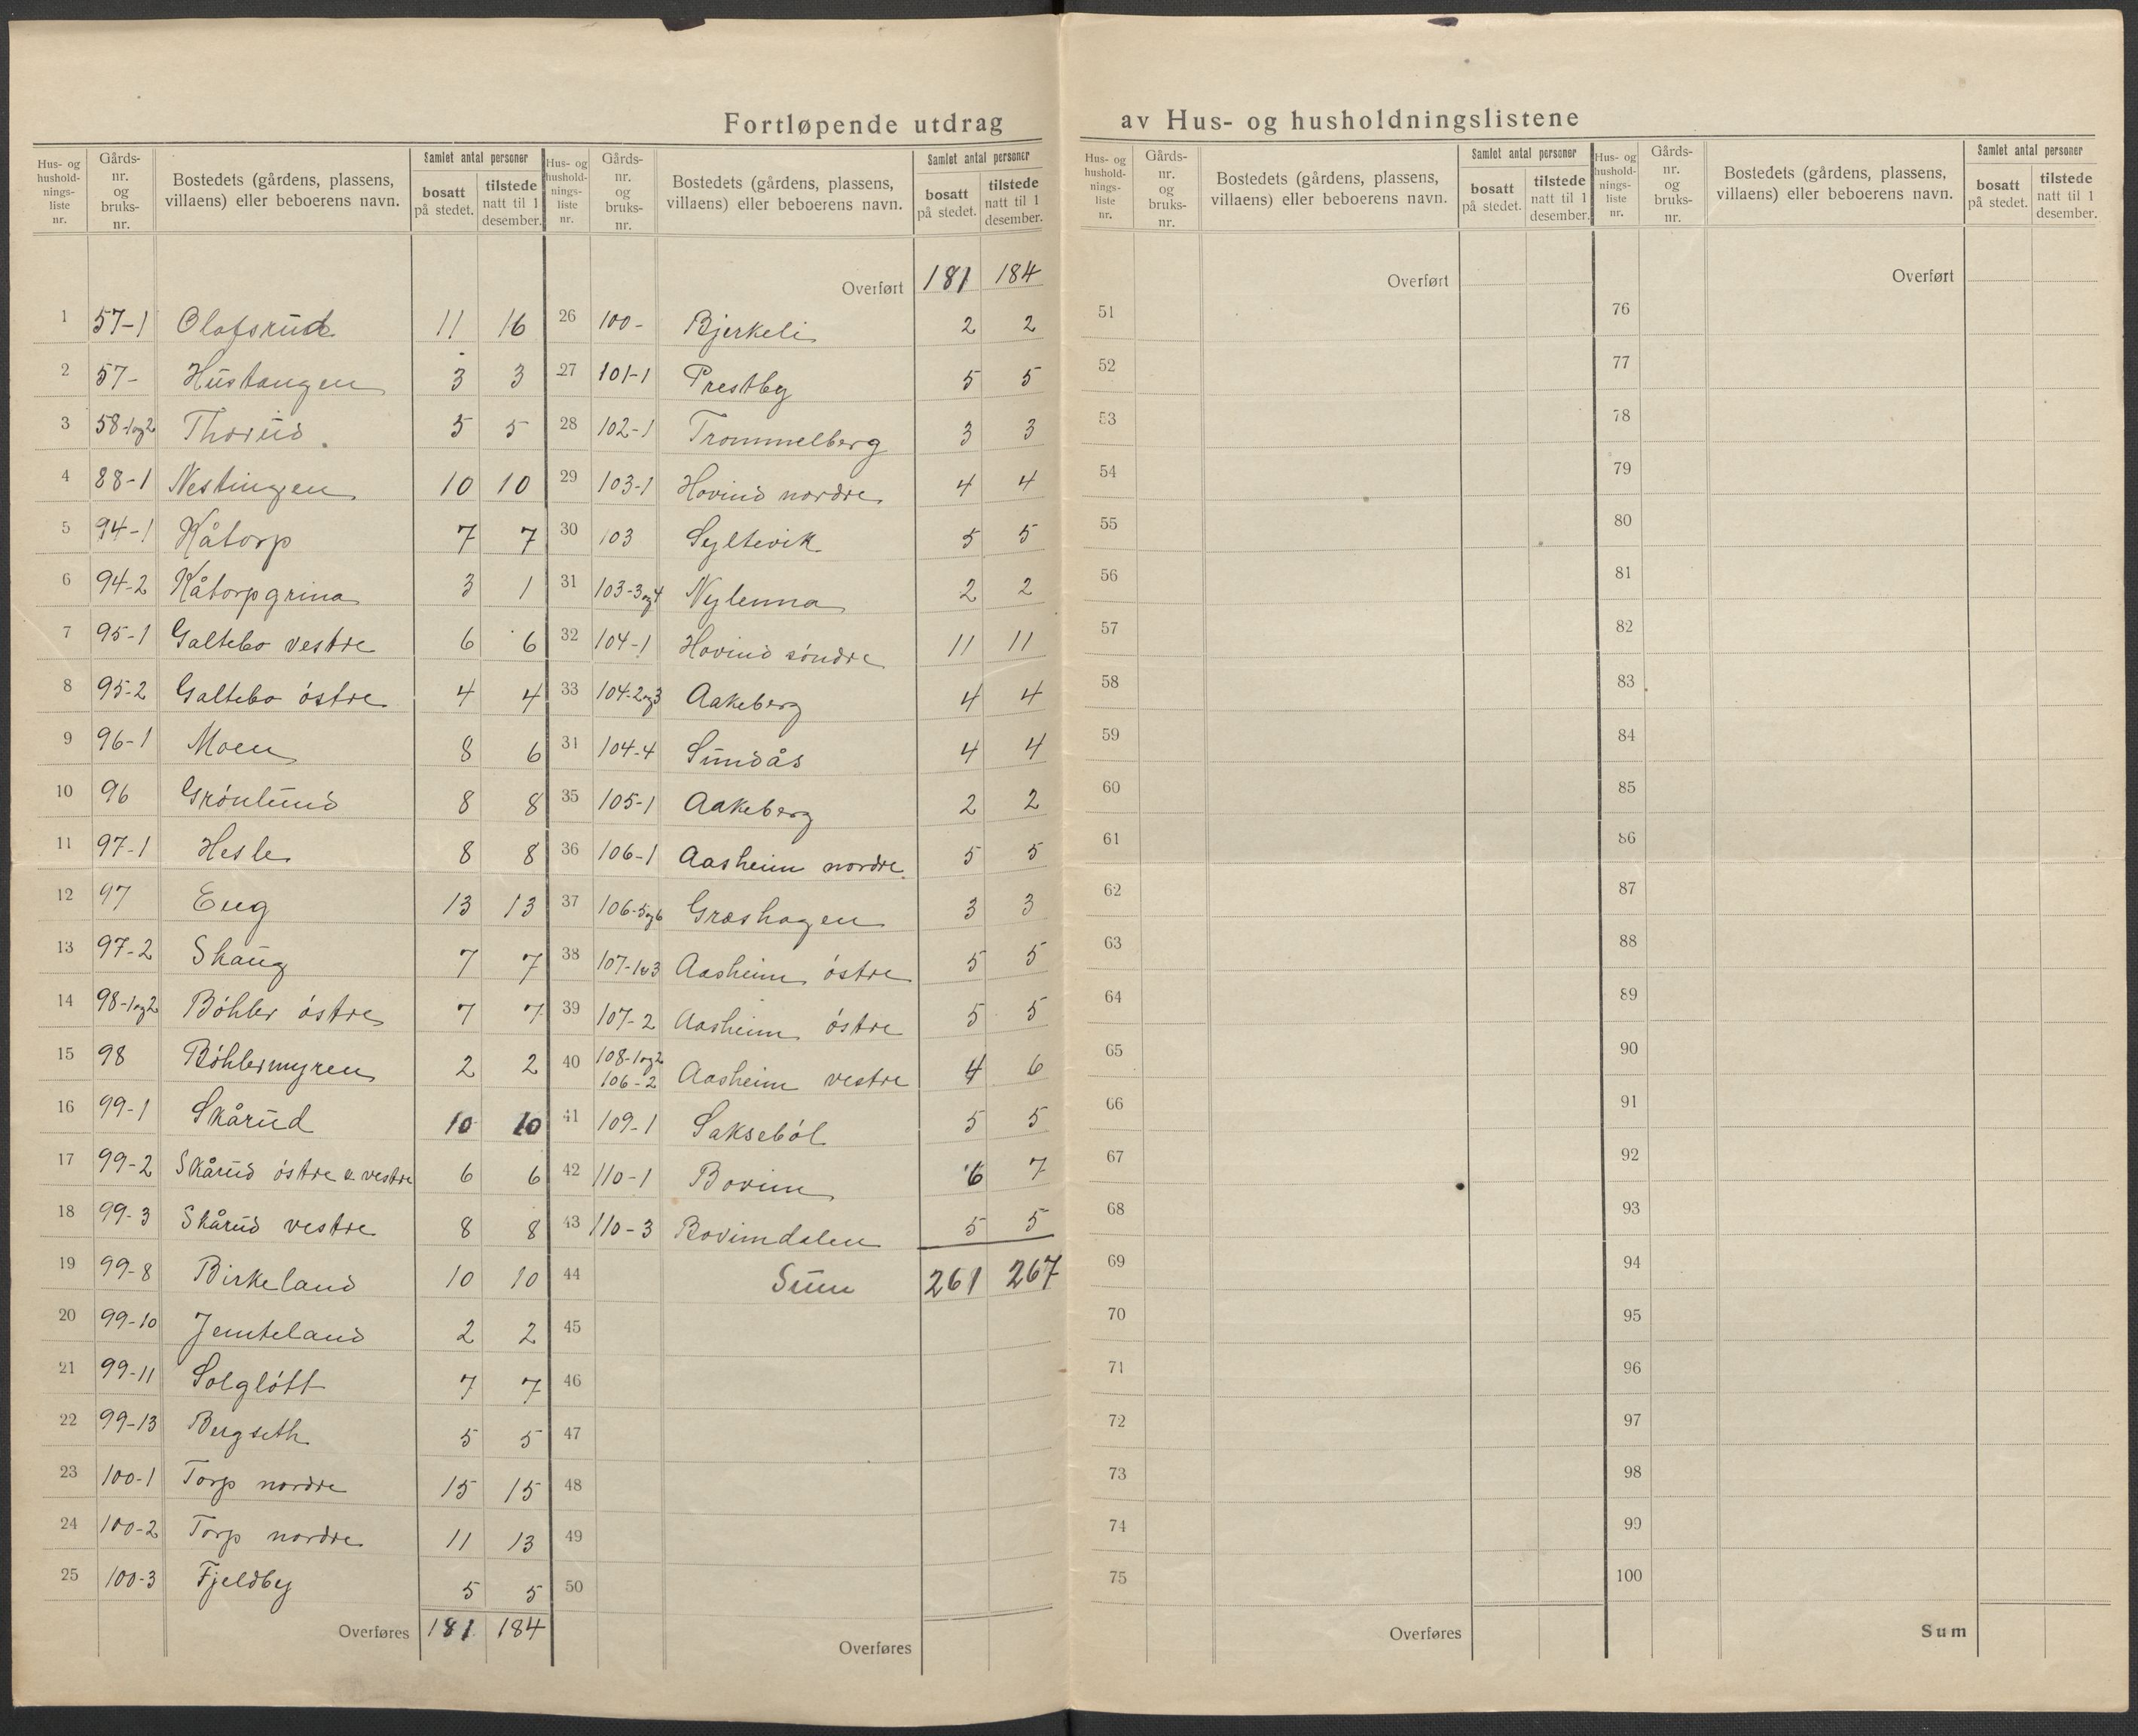 Fortløpende utdrag av Hus- og husholdningslistene
Hus- og hushold- nings- liste nr. | Gårds- nr. og bruks- nr. | Bostedets (gårdens, plassens, villaens) eller beboerens navn. | Samlet antal personer | bosatt på stedet. | tilstede natt til 1 desember.
1 57-1 Olafsrud 11 16
2 57- Hustangen 3 3
3 58-1og2 Thorud. 5 5
4 88-1 Nestingen 10 10
5 94-1 Kåtorp 7 7
6 94-2 Kåtorpgrina 3 1
7 95-1 Galtebo vestre 6 6
8 95-2 Galtebo östre 4 4
9 96-1 Moen 8 6
10 96 Grönlund 8 8
11 97-1 Hesle 8 8
12 97 Eng 13 13
13 97-2 Skaug 7 7
14 98-1og2 Böhler östre 7 7
15 98 Böhlermyren 2 2
16 99-1 Skårud 10 10
17 99-2 Skårud östre & vestre 6 6
18 99-3 Skårud vestre 8 8
19 99-8 Birkeland 10 10
20 99-10 Jemteland 2 2
21 99-11 Solglött 7 7
22 99-13 Bergseth 5 5
23 100-1 Torp nordre 15 15
24 100-2 Torp nordre 11 13
25 100-3 Fjeldby 5 5
Overføres 181 184
Hus- og hushold- nings- liste nr. | Gårds- nr. og bruks- nr. | Bostedets (gårdens, plassens, villaens) eller beboerens navn. | Samlet antal personer | bosatt på stedet. | tilstede natt til 1 desember.
Overført 181 184
26 100- Bjerkeli 2 2
27 101-1 Prestby 5 5
28 102-1 Trommelberg 3 3
29 103-1 Hovind nordre 4 4
30 103 Syltevik 5 5
31 103-3og4 Nylenna 2 2
32 104-1 Hovind söndre 11 11
33 104-2og3 Aakeberg 4 4
34 104-4 Sundås 4 4
35 105-1 Aakeberg 2 2
36 106-1 Aasheim nordre. 5 5
37 106-5og6 Græshagen 3 3
38 107-1o3 Aasheim östre 5 5
39 107-2 Aasheim östre 5 5
40 108-1og2 106-2 Aasheim vestre 4 6
41 109-1 Sakseböl 5 5
42 110-1 Bovim 6 7
43 110-3 Bovimdalen 5 5
44 Sum 261 267
45
46
47
48
49
50
Overføres
Hus- og hushold- nings- liste nr. | Gårds- nr. og bruks- nr. | Bostedets (gårdens, plassens, villaens) eller beboerens navn. | Samlet antal personer | bosatt på stedet. | tilstede natt til 1 desember.
Overført
51
52
53
54
55
56
57
58
59
60
61
62
63
64
65
66
67
68
69
70
71
72
73
74
75
Overføres
Hus- og hushold- nings- liste nr. | Gårds- nr. og bruks- nr. | Bostedets (gårdens, plassens, villaens) eller beboerens navn. | Samlet antal personer | bosatt på stedet. | tilstede natt til 1 desember.
Overført
76
77
78
79
80
81
82
83
84
85
86
87
88
89
90
91
92
93
94
95
96
97
98
99
100
Sum